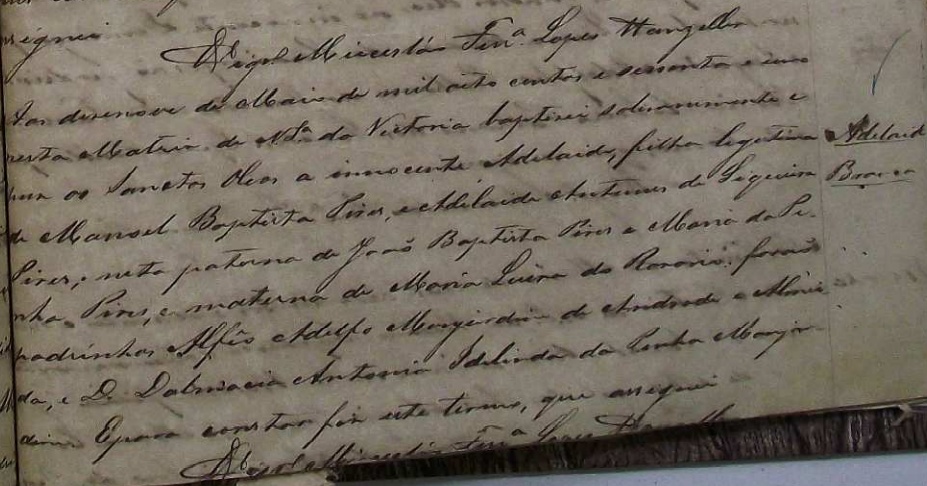 assignei
O Vigrº Miecesláu Ferrª Lopes Wanzeller
Aos desenove de Maio de mil oito centos e sessenta e um
nesta Matriz de N.Sª da Victoria baptisei solemnimente e
puz os Sanctos Oleos a innocente Adelaide, filha legitima
de Manoel Baptista Pires, e Adelaide Antunes de Siqueira
Pires; neta paterna de João Baptista Pires e Maria da Pe-
nha Pires, e materna de Maria Luiza do Rosario: forão
padrinhos Alfes Adelfo Marjardim de Andrade e Almei
da, e D. Dalmacia Antonia Idelinda da Penha Marjar
dim Epara constar fiz este termo, que assignei
O Vigrº Miecesláu Ferrª Lopes Wanzeller
Adelaid
Branca